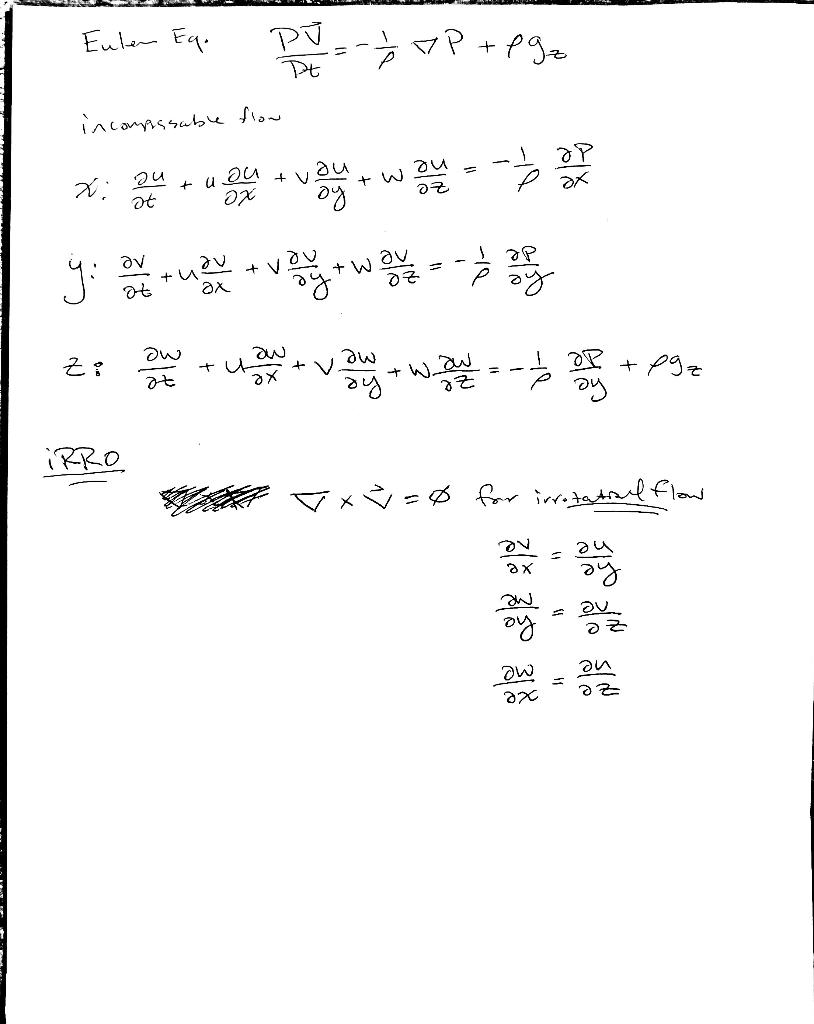 Euler Eq. DV⃗/Dt = -1/ρ ∇P + ρg_z
incompssable flow
x: ∂u/∂t + u ∂u/∂x + v ∂u/∂y + w ∂u/∂z = -1/ρ ∂P/∂x
y: ∂v/∂t + u ∂v/∂x + v ∂v/∂y + w ∂v/∂z = -1/ρ ∂P/∂y
z: ∂w/∂t + u ∂w/∂x + v ∂w/∂y + w ∂w/∂z = -1/ρ ∂P/∂y + ρg_z
iRRO
∇ × V⃗ = ∅ for irrotational flow
∂v/∂x = ∂u/∂y
∂w/∂y = ∂v/∂z
∂w/∂x = ∂u/∂z